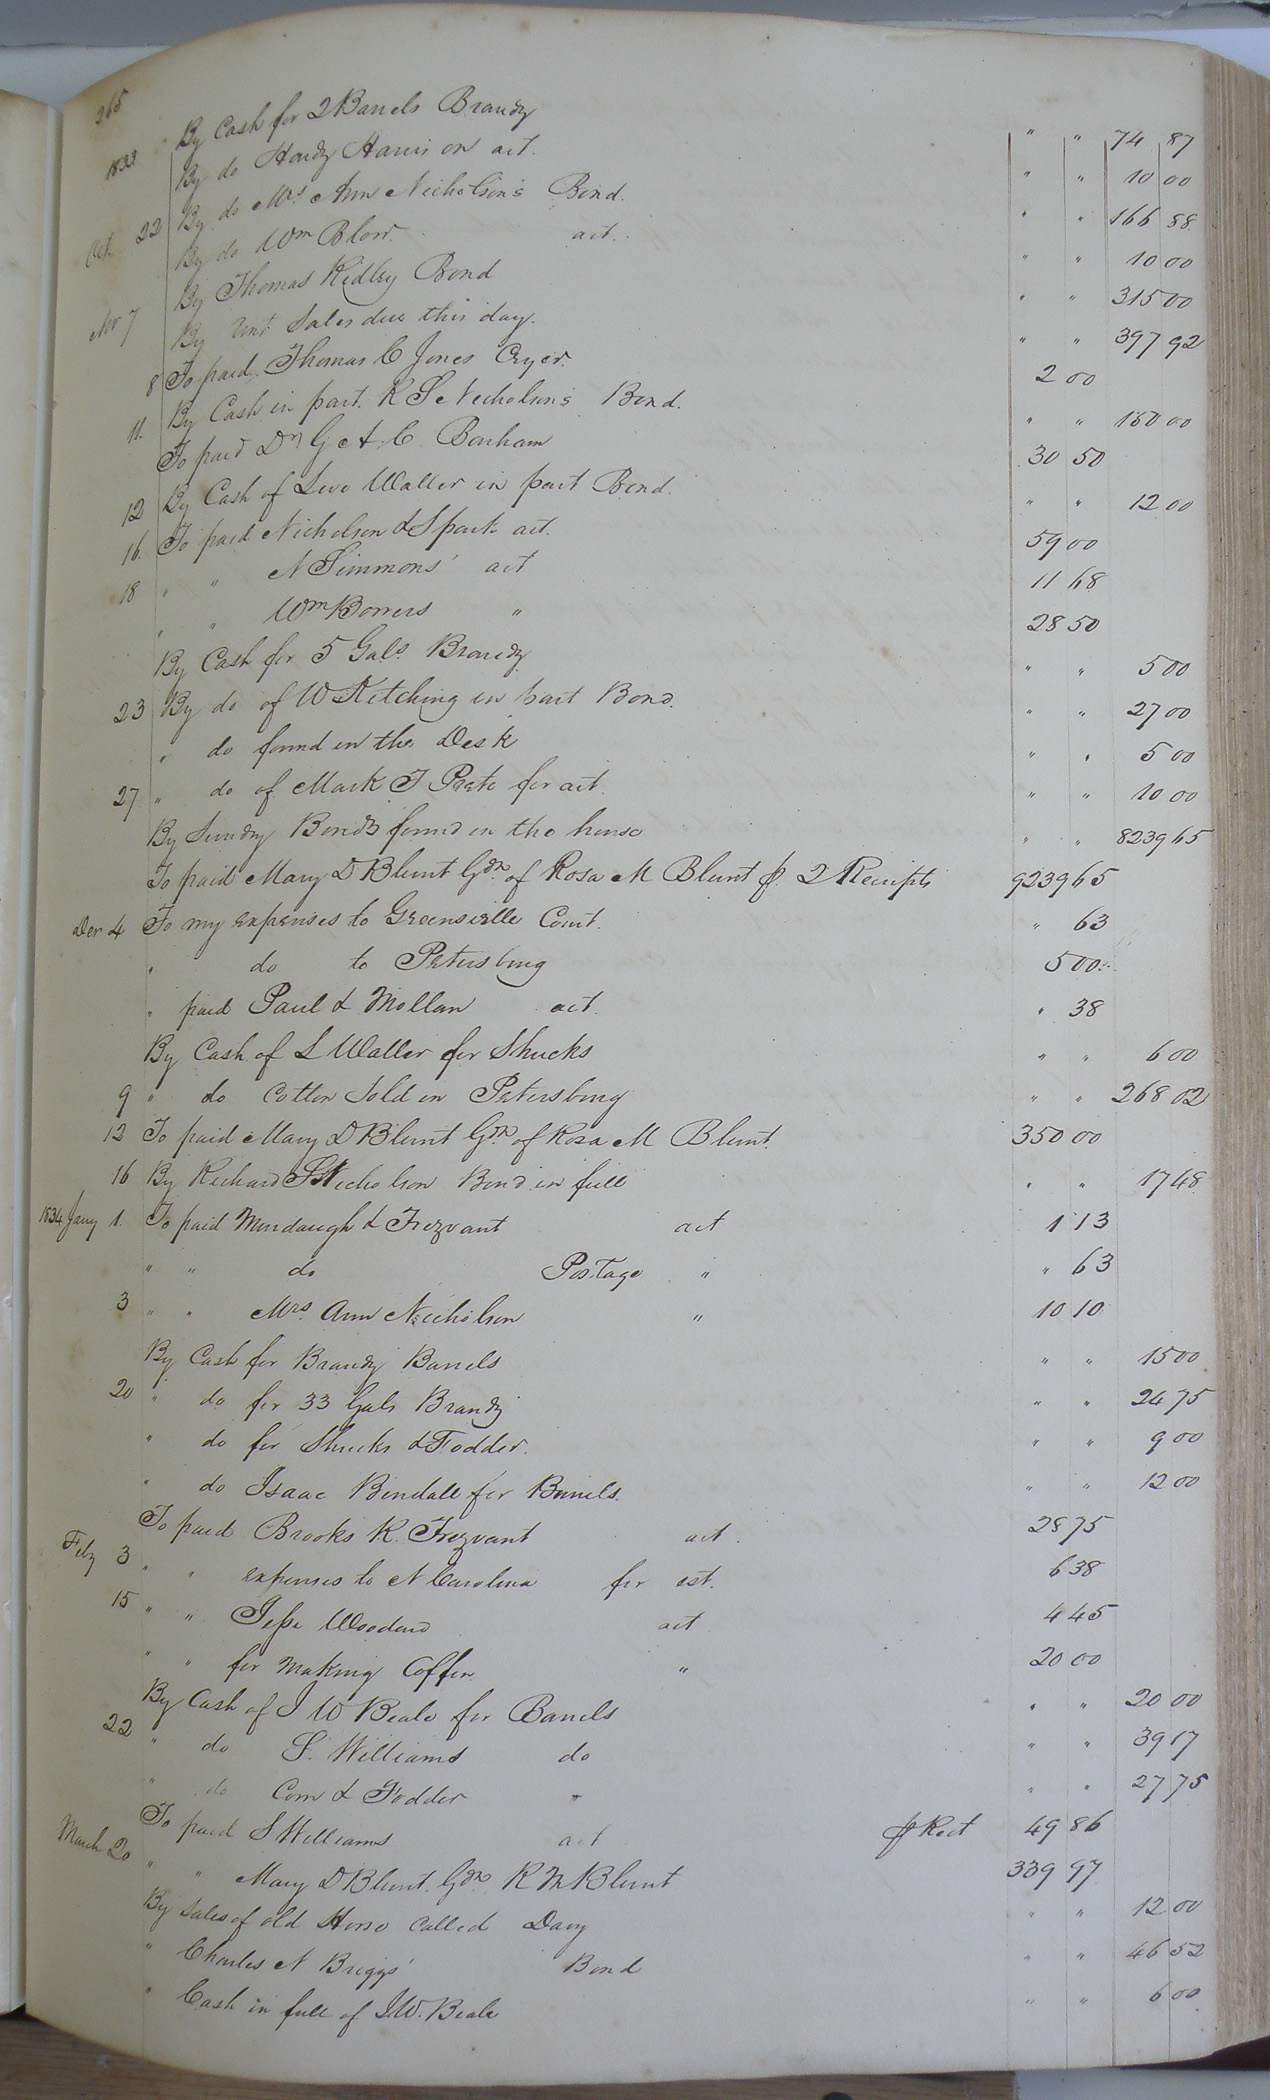 365
1833 By Cash for 2 Barrels Brandy " " 74 87
By do Hardy Harris on act. " " 10 00
Oct 22 By do Mrs. Ann Nicholson's Bond. " " 166 88
By do Wm Blow act. " " 10 00
Nov 7 By Thomas Ridley Bond " " 315 00
By Amt Sales due this day. " " 397 92
8 To paid Thomas C Jones Cryer. 2 00
11. By Cash in part. R S Nicholson's Bond. " " 150 00
To paid Drs G & A. C. Bonham 30 50
12 By Cash of Levi Waller in part Bond. " " 12 00
16. To paid Nicholson & Spark act. 59 00
18 " " N Simmons' act 11 68
" " Wm Bowers " 28 50
By Cash for 5 Gals. Brandy " " 5 00
23 By do of W Kitching in part Bond. " " 27 00
" do found in the Desk " " 5 00
27 " do of Mark T Pate for act. " " 10 00
By Sundry Bonds found in the house " " 8239 65
To paid Mary D Blunt Gdn. of Rosa M Blunt pr. 2 Receipts 9239 65
Decr 4 To my expenses to Greensville Court. " 63
" do to Petersburg 5 00
" paid Paul & Mollan act. " 38
By Cash of L Waller for Shucks " " 6 00
9 " do Cotton Sold in Petersburg " " 268 02
12 To paid Mary D Blunt Gdn. of Rosa M Blunt. 350 00
16 By Richard S Nicholson Bond in full " " 17 48
1834 Jany 1. To paid Murdaugh & Trezvant act 1 13
" " do Postage " " 63
3 " " Mrs. Ann Nicholson " 10 10
By Cash for Brandy Barrels " " 15 00
20 " do for 33 Gals Brandy " " 24 75
" do for Shucks & Fodder. " " 9 00
" do Isaac Bendall for Barrels. " " 12 00
To paid Brooks R. Trezvant act. 28 75
Feby 3 " " expenses to N Carolina for est. 6 38
15 " " Jesse Woodard act 4 45
" " for making Coffin " 20 00
By Cash of J W Beale for Barrels " " 20 00
22 " do S. Williams do " " 39 17
" do Corn & Fodder " " " 27 75
To paid S Williams act pr Rect 49 86
March 20 " " Mary D Blunt. Gdn. R M Blunt 339 97
By Sales of old Horse called Davy " " 12 00
" Charles N Briggs' Bond " " 46 52
" Cash in full of J.W. Beale " " 6 00